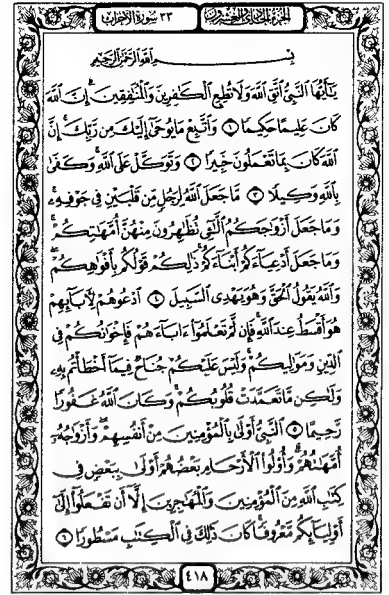 الجزء الحادي والعشرون
٣٣ سورة الأحزاب
بِسْمِ اللَّهِ الرَّحْمَٰنِ الرَّحِيمِ
يَٰٓأَيُّهَا ٱلنَّبِىُّ ٱتَّقِ ٱللَّهَ وَلَا تُطِعِ ٱلْكَٰفِرِينَ وَٱلْمُنَٰفِقِينَ ۗ إِنَّ ٱللَّهَ
كَانَ عَلِيمًا حَكِيمًا ١ وَٱتَّبِعْ مَا يُوحَىٰٓ إِلَيْكَ مِن رَّبِّكَ ۚ إِنَّ
ٱللَّهَ كَانَ بِمَا تَعْمَلُونَ خَبِيرًا ٢ وَتَوَكَّلْ عَلَى ٱللَّهِ ۚ وَكَفَىٰ
بِٱللَّهِ وَكِيلًا ٣ مَّا جَعَلَ ٱللَّهُ لِرَجُلٍ مِّن قَلْبَيْنِ فِى جَوْفِهِۦ ۚ
وَمَا جَعَلَ أَزْوَٰجَكُمُ ٱلَّٰٓـِٔى تُظَٰهِرُونَ مِنْهُنَّ أُمَّهَٰتِكُمْ ۚ
وَمَا جَعَلَ أَدْعِيَآءَكُمْ أَبْنَآءَكُمْ ۚ ذَٰلِكُمْ قَوْلُكُم بِأَفْوَٰهِكُمْ ۖ
وَٱللَّهُ يَقُولُ ٱلْحَقَّ وَهُوَ يَهْدِى ٱلسَّبِيلَ ٤ ٱدْعُوهُمْ لِـَٔابَآئِهِمْ
هُوَ أَقْسَطُ عِندَ ٱللَّهِ ۚ فَإِن لَّمْ تَعْلَمُوٓا۟ ءَابَآءَهُمْ فَإِخْوَٰنُكُمْ فِى
ٱلدِّينِ وَمَوَٰلِيكُمْ ۚ وَلَيْسَ عَلَيْكُمْ جُنَاحٌ فِيمَآ أَخْطَأْتُم بِهِۦ
وَلَٰكِن مَّا تَعَمَّدَتْ قُلُوبُكُمْ ۚ وَكَانَ ٱللَّهُ غَفُورًا
رَّحِيمًا ٥ ٱلنَّبِىُّ أَوْلَىٰ بِٱلْمُؤْمِنِينَ مِنْ أَنفُسِهِمْ ۖ وَأَزْوَٰجُهُۥٓ
أُمَّهَٰتُهُمْ ۗ وَأُو۟لُوا۟ ٱلْأَرْحَامِ بَعْضُهُمْ أَوْلَىٰ بِبَعْضٍ فِى
كِتَٰبِ ٱللَّهِ مِنَ ٱلْمُؤْمِنِينَ وَٱلْمُهَٰجِرِينَ إِلَّآ أَن تَفْعَلُوٓا۟ إِلَىٰٓ
أَوْلِيَآئِكُم مَّعْرُوفًا ۚ كَانَ ذَٰلِكَ فِى ٱلْكِتَٰبِ مَسْطُورًا ٦
٤١٨